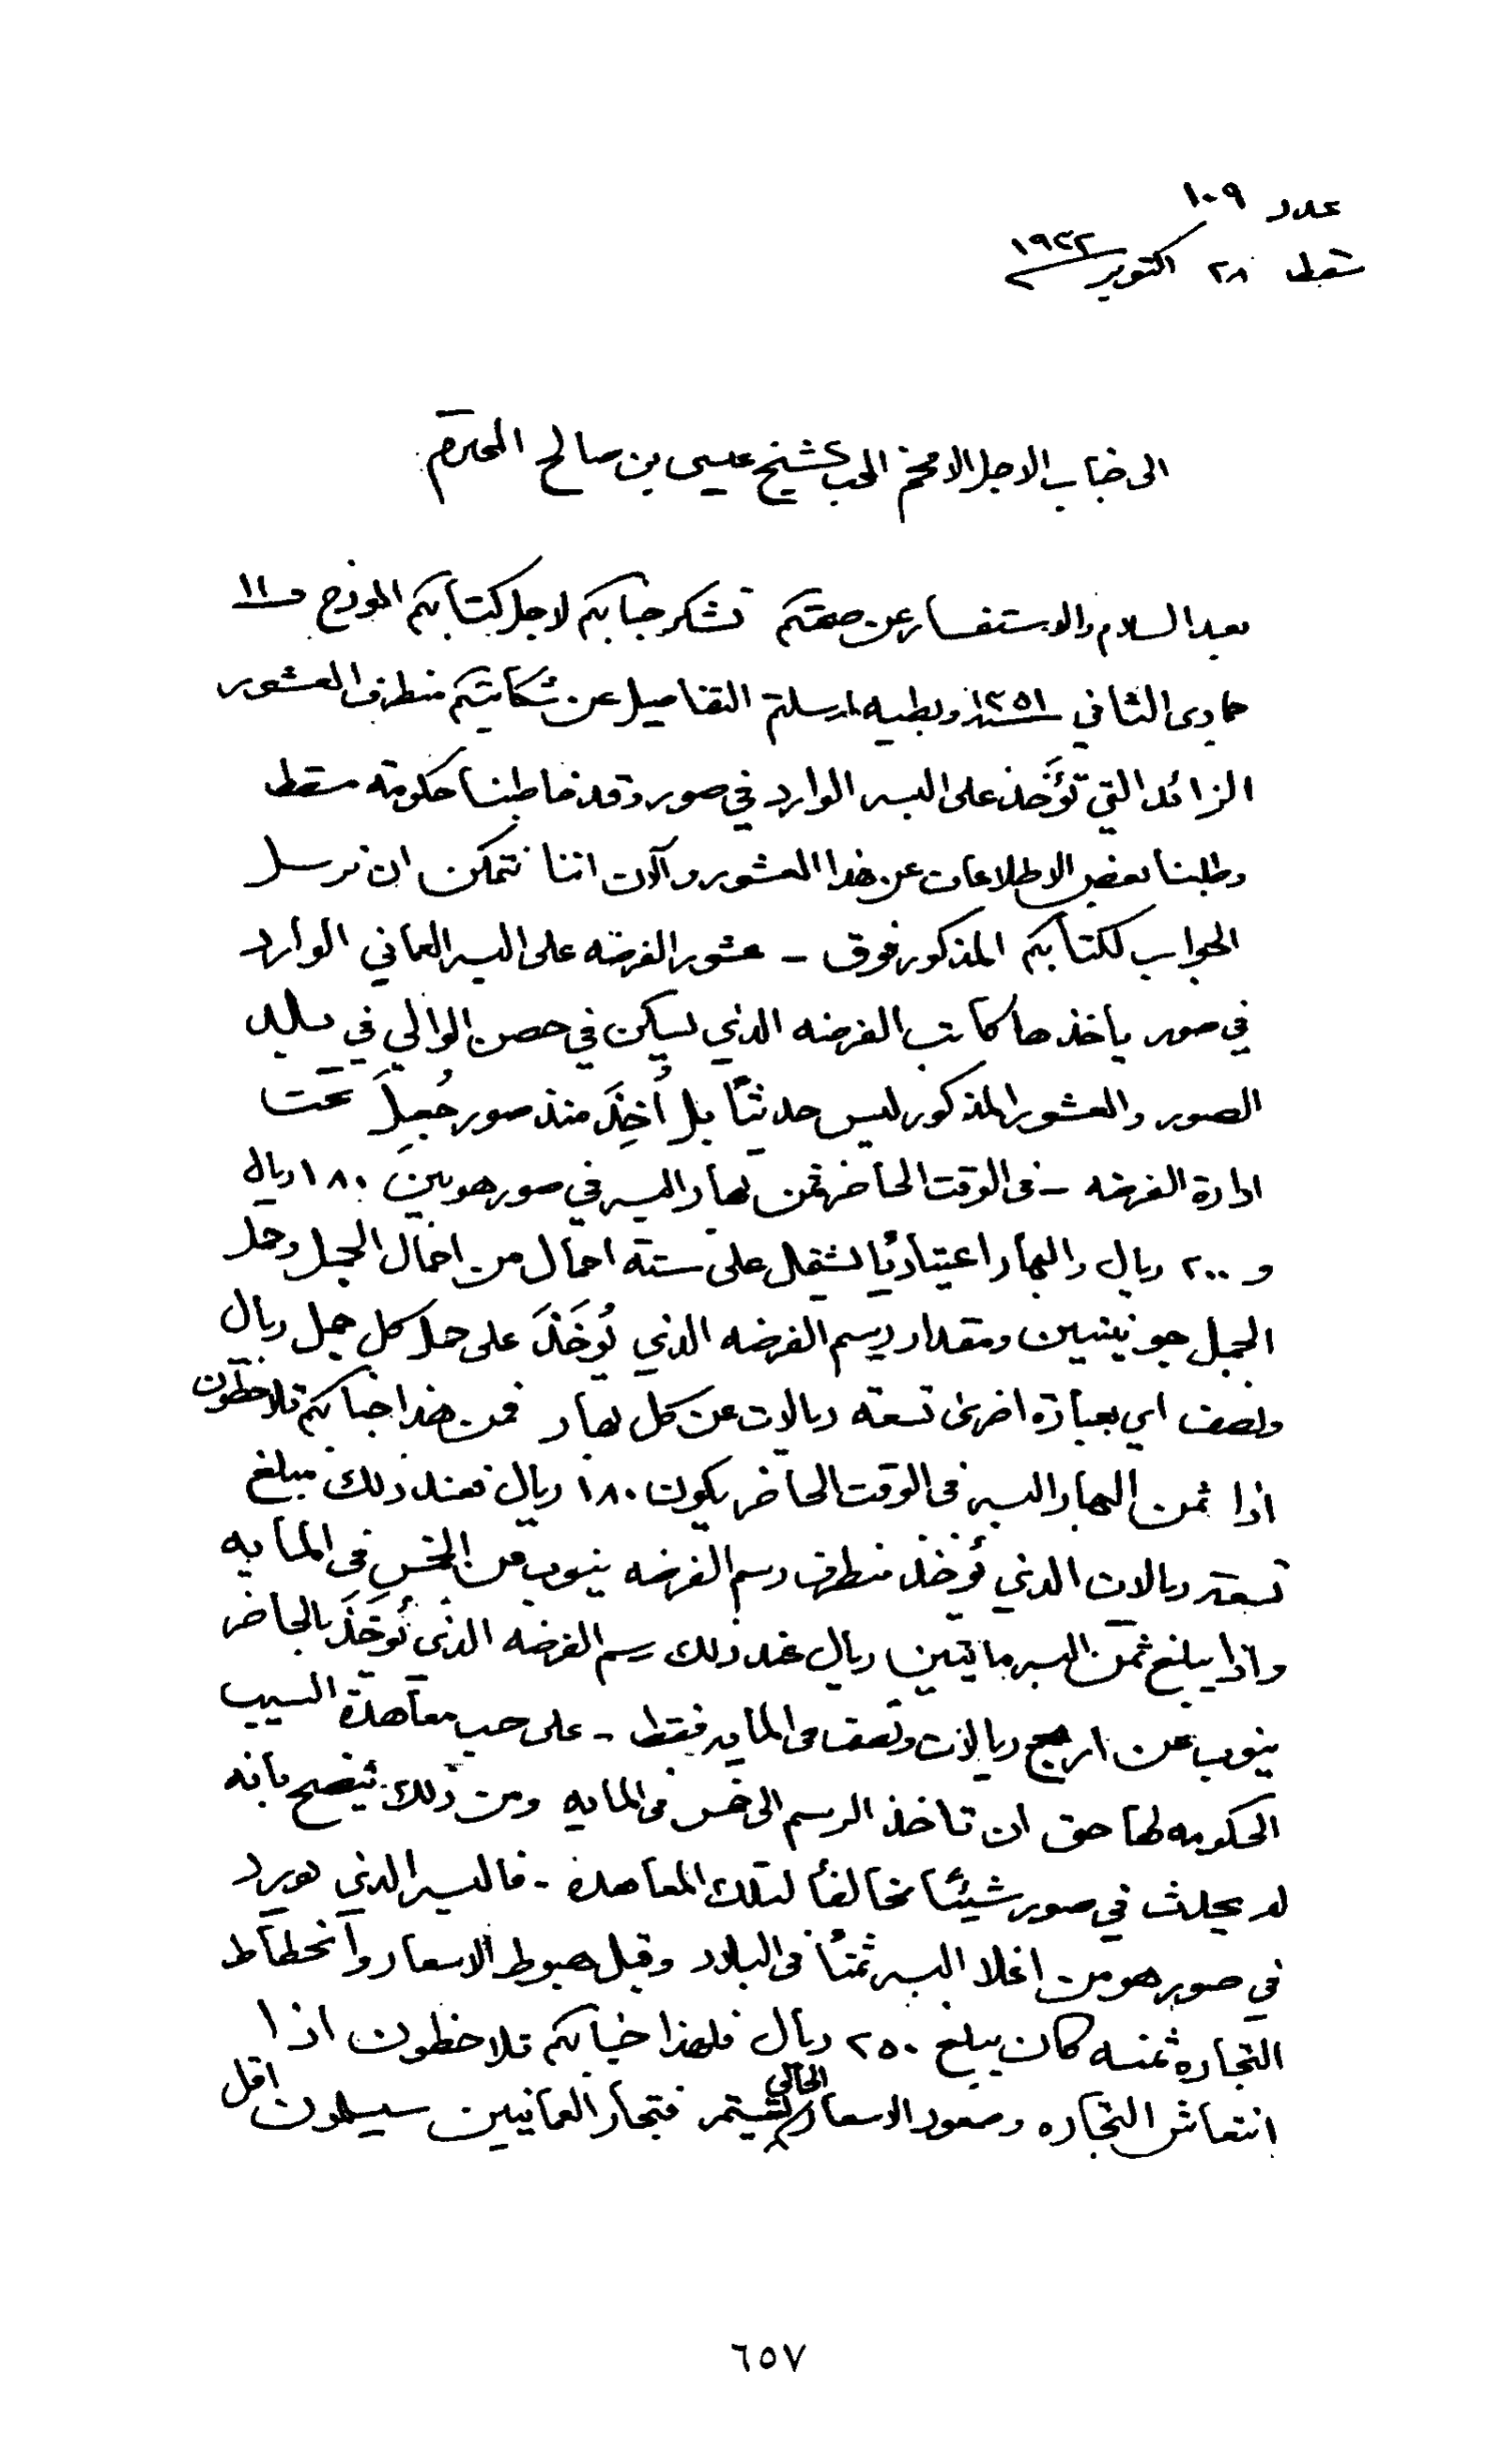 عدد ١٠٩
مسقط ٢٨ اكتوبر ١٩٣٢
الى جناب الاجل الافخم المحب الشيخ عيسى بن صالح المحترم
بعد السلام والاستفسار عن صحتكم نشكر جنابكم لاجل كتابكم المؤرخ ١١
جمادى الثاني ١٣٥١ وبطيه ارسلتم التفاصيل عن شكايتكم منطرف العشور
الزائد التي تؤخذ على البسر الوارد في صور وقد خاطبنا حكومة مسقط
وطلبنا بعض الاطلاعات عن هذا العشور والآن اننا نتمكن ان نرسل
الجواب لكتابكم المذكور فوق - عشور الفرضه على البسر العماني الوارد
في صور ياخذها كاتب الفرضه الذي يسكن في حصن الوالي في بلد
الصور والعشور المذكور ليس حديثاً بل أُخِذَ منذ صور جُعِلَ تحت
ادارة الفرضه - فى الوقت الحاضر ثمن بهار البسر في صور هو بين ١٨٠ ريال
و ٢٠٠ ريال والبهار اعتيادياً يشتمل على ستة احمال من احمال الجمل وحمل
الجمل جونيتين ومقدار رسم الفرضه الذي يُوخَذَ على حمل كل جمل ريال
ونصف اي بعبارة اخرى تسعة ريالات عن كل بهار فمن هذا جنابكم تلاحظون
اذا ثمن البهار البسر فى الوقت الحاضر يكون ١٨٠ ريال فعند ذلك مبلغ
تسعة ريالات الذي يُؤخذ منطرف رسم الفرضه ينوب عن الخمس فى المايه
واذا يبلغ ثمن البسر مايتين ريال عند ذلك رسم الفرضه الذى يُوخَذَ بالحاضر
ينوب عن اربع ريالات ونصف فى المايه فقط - على حسب معاهدة السيب
الحكومه لها حق ان تاخذ الرسم الى خمس فى المايه ومن ذلك يتضح بانه
لم يحدث في صور شيئاً مخالفاً لتلك المعاهدة - فالبسر الذي يورد
في صور هو من اغلا البسر ثمناً فى البلاد وقبل هبوط الاسعار وانحطاط
التجاره ثمنه كان يبلغ ٢٥٠ ريال فلهذا جنابكم تلاحظون اذا
انتعاش التجاره وصعود الاسعار الحالي يستمر فتجار العمانيين سيسلمون اقل
٦٥٧